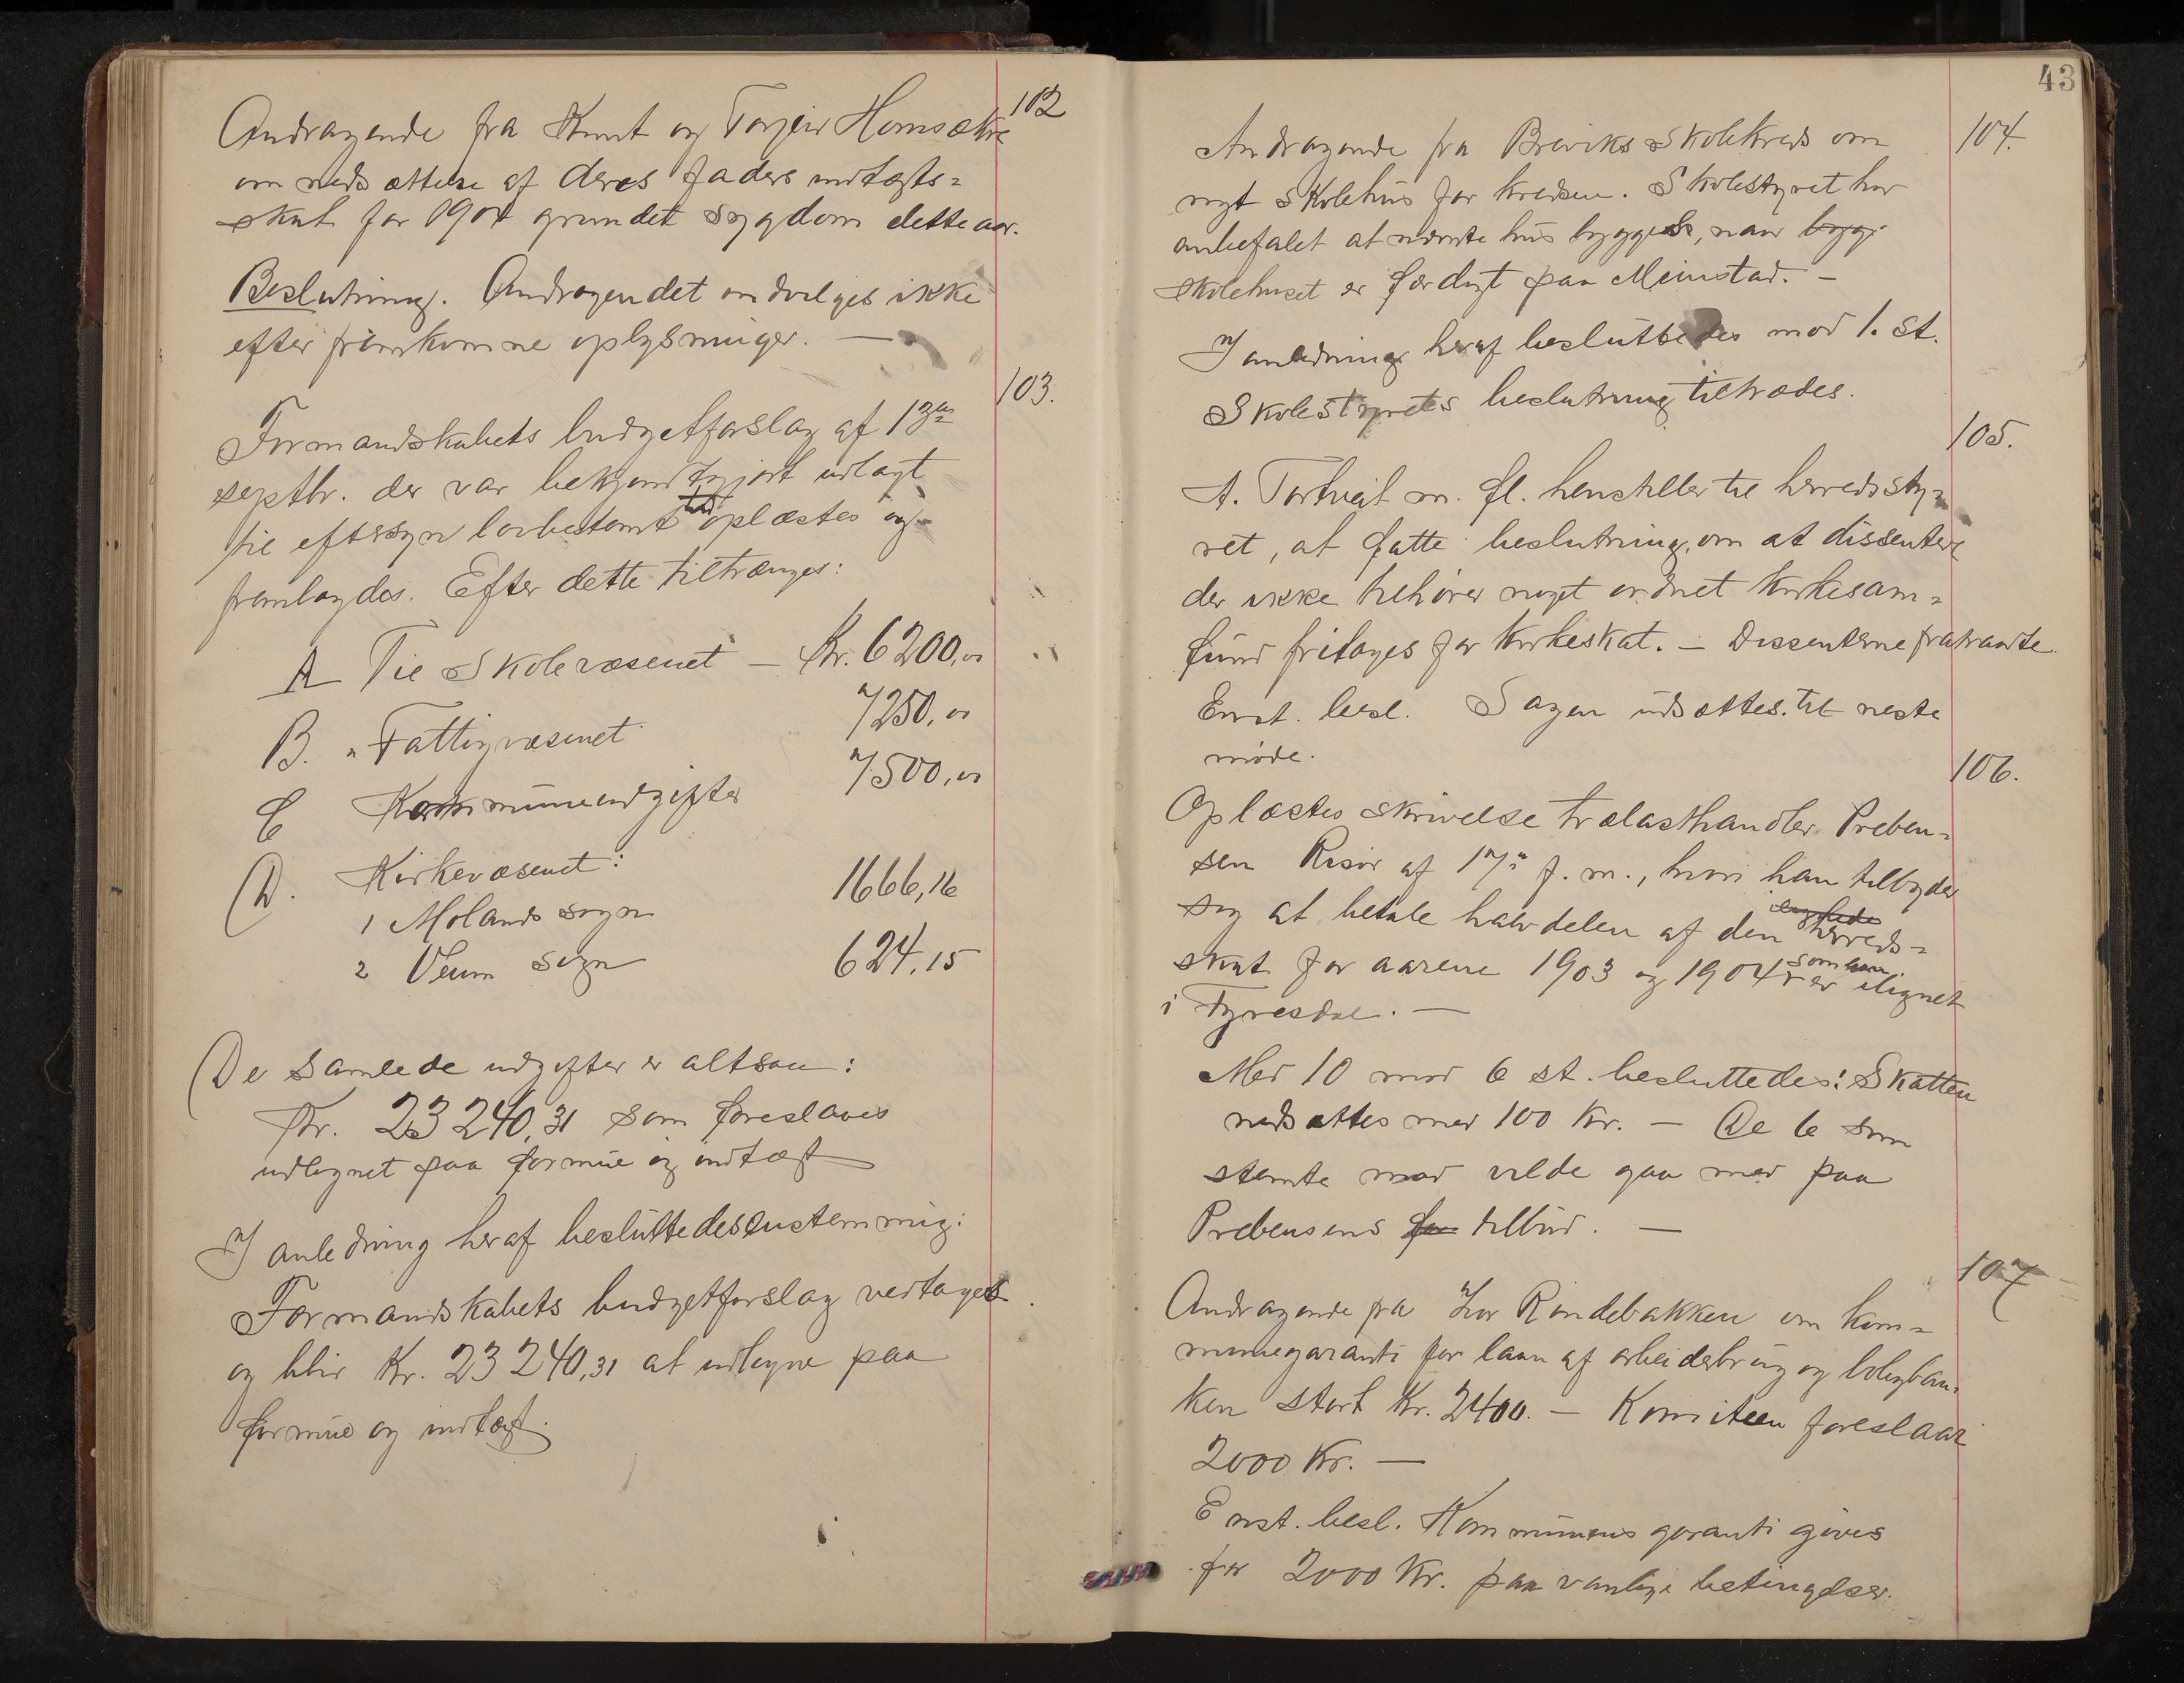 102
Andragende fra Knut og Torjeir Homsætre
om nedsættelse af deres faders indtægts=
skat for 1904 grundet sygdom dette aar.
Beslutning. Andragendet indvilges ikke
efter fremkomne oplysninger. —
103.
Formandskabets budgetforslag af 13de
septbr. der var bekjendtgjort udlagt
til eftersyn lovbestemt tid oplæstes og
fremlagdes. Efter dette tiltrænges:
A Til Skolevæsenet — Kr. 6200,00
B. " Fattigvæsenet " 7250,00
C Kommuneudgifter " 7500,00
D. Kirkevæsenet:
1 Molands sogn 1666,16
2 Veum sogn 624,15
De samlede udgifter er altsaa:
Kr. 23240,31 som foreslaaes
udlignet paa formue og indtægt
I anledning heraf besluttedes enstemmig:
Formandskabets budgetforslag vedtages
og blir Kr. 23240,31 at udligne paa
formue og indtægt.
43
104.
Andragende fra Breviks Skolekreds om
nyt skolehus for kredsen. Skolestyret har
anbefalet at nævnte hus bygges, naar bygg.
skolehuset er færdigt paa Meinstad. —
I anledning heraf besluttedes mod 1. st.
Skolestyrets beslutning tiltrædes.
105.
A. Tortveit m. fl. henstiller til herredssty=
ret, at fatte beslutning om at dissentere
der ikke tilhører noget ordnet kirkesam=
fund fritages for kirkeskat. — Dissenterne fratraadte.
Enst. besl. Sagen udsættes til neste
møde.
106.
Oplæstes skrivelse trælasthandler Preben=
sen Risør af 17de f. m., hvori han tilbyder
sig at betale halvdelen af den herreds=
skat for aarene 1903 og 1904 som er ilignet
i Fyresdal. —
Med 10 mod 6 st. besluttedes: Skatten
nedsættes med 100 Kr. — De 6 som
stemte mod vilde gaa med paa
Prebensens for tilbud. —
107
Andragende fra Lor Rindebakken om kom=
munegaranti for laan af arbeiderbrug og boligban=
ken stort Kr. 2400. — Komiteen foreslaar
2000 Kr. —
Enst. besl. Kommunens garanti gives
for 2000 Kr. paa vanlige betingelser.